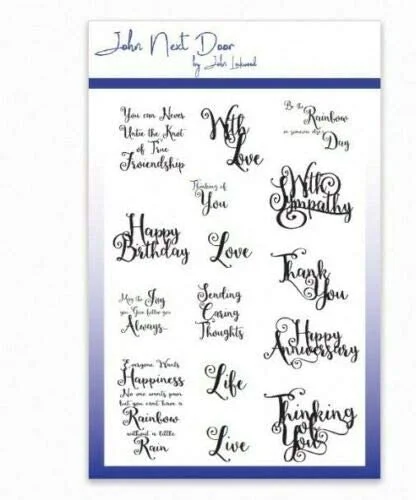 John Next Door
by John Lockwood
You can Never
Untie the Knot
of True
Friendship
With
Love
Be the
Rainbow
in someone else's
Day
Thinking of
You
With
Sympathy
Happy
Birthday
Love
Thank
You
May the Joy
you Give follow you
Always...
Sending
Caring
Thoughts
Happy
Anniversary
Everyone Wants
Happiness
No one wants pain
but you cant have a
Rainbow
without a little
Rain
Life
Live
Thinking
of
You